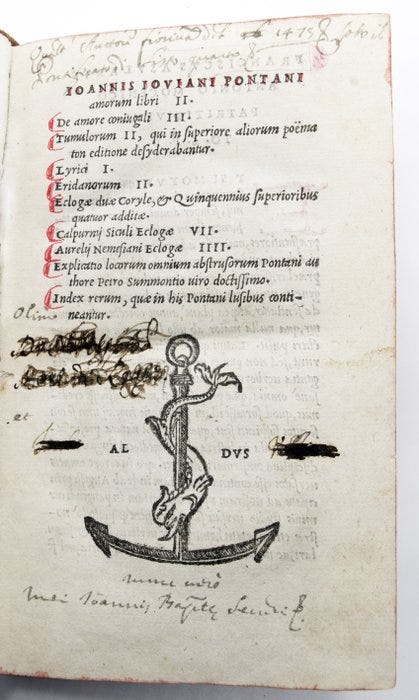 fioriua 1475
IOANNIS IOVIANI PONTANI
amorum libri II.
De amore coniugali III.
Tumulorum II, qui in superiore aliorum poëma
ton editione desyderabantur.
Lyrici I.
Eridanorum II.
Eclogæ duæ Coryle, & Quinquennius superioribus
quatuor additæ.
Calpurnij Siculi Eclogæ VII.
Aurelij Nemesiani Eclogæ IIII.
Explicatio locorum omnium abstrusorum Pontani au
thore Petro Summontio uiro doctissimo.
Index rerum, quæ in his Pontani lusibus conti-
neantur.
Olim
et
AL DVS
nunc uero
mei Ioannis